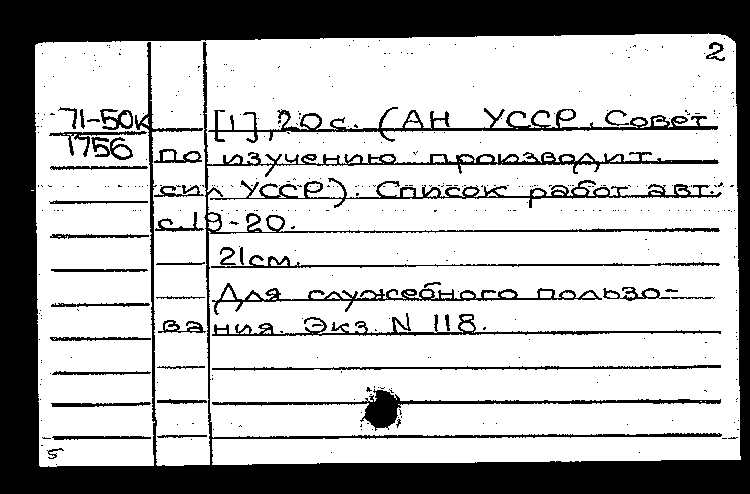 2
71-50к [1], 20 с. (АН УССР. Совет
1756 по изучению производит.
сил УССР). Список работ авт.:
с. 19-20.
21 см.
Для служебного пользо-
вания. Экз. N 118.
5